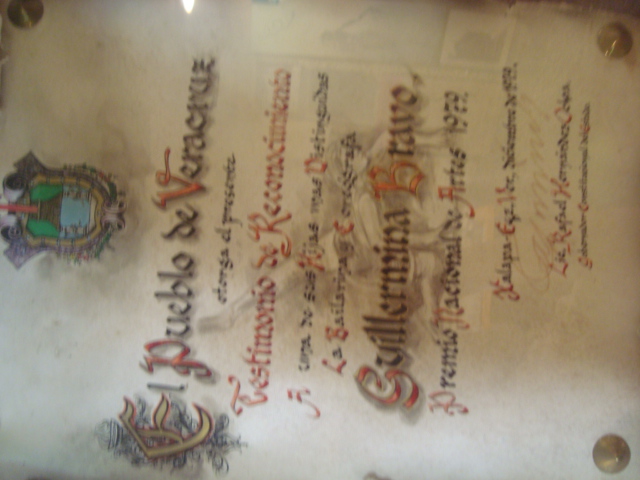 El Pueblo de Veracruz
otorga el presente
Testimonio de Reconocimiento
A una de sus Hijas mas Distinguidas
La Bailarina y Coreógrafa
Guillermina Bravo,
Premio Nacional de Artes 1979.
Xalapa-Eqz. Ver. diciembre de 1979.
Lic. Rafael Hernández Ochoa
Gobernador Constitucional del Estado